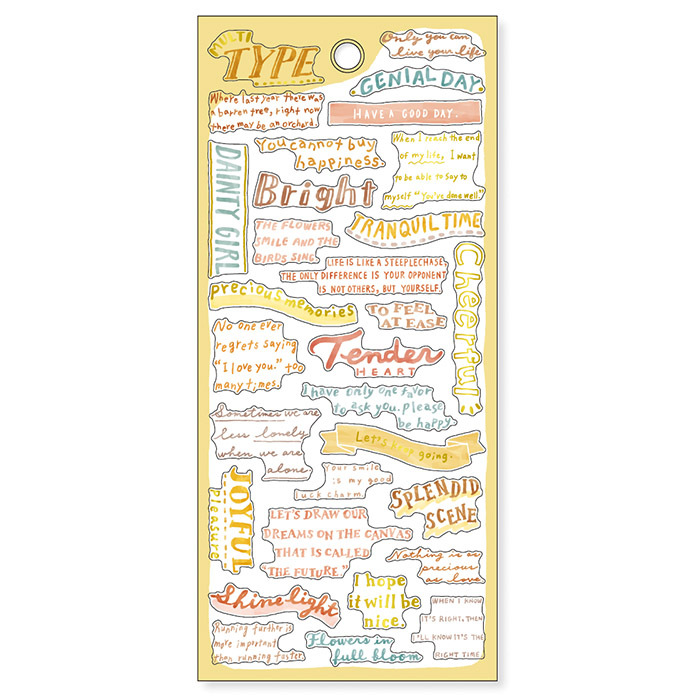 MULTI
TYPE
Only you can
live your life.
GENIAL DAY
Where last year there was
a barren tree, right now
there may be an orchard.
HAVE A GOOD DAY.
You cannot buy
happiness.
When I reach the end
of my life, I want
to be able to say to
myself "You've done well."
DAINTY GIRL
Bright
TRANQUIL TIME
THE FLOWERS
SMILE AND THE
BIRDS SING.
Cheerful
LIFE IS LIKE A STEEPLECHASE,
THE ONLY DIFFERENCE IS YOUR OPPONENT
IS NOT OTHERS, BUT YOURSELF.
precious memories
TO FEEL
AT EASE
No one ever
regrets saying
"I love you." too
many times.
Tender
HEART
I have only one favor
to ask you. Please
be happy.
Sometimes we are
less lonely
when we are
alone.
Let's keep going.
Your smile
is my good
luck charm.
JOYFUL
Pleasure
SPLENDID
SCENE
LET'S DRAW OUR
DREAMS ON THE CANVAS
THAT IS CALLED
"THE FUTURE"
Nothing is as
precious
as love
Shine light
I hope
it will be
nice.
WHEN I KNOW
IT'S RIGHT, THEN
I'LL KNOW IT'S THE
RIGHT TIME.
Running further is
more important
than running faster.
Flowers in
full bloom